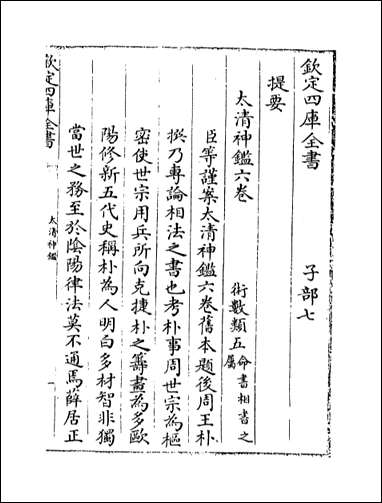 欽定四庫全書 子部七
提要
太清神鑑六卷 術數類五命書相書之屬
臣等謹案太清神鑑六卷舊本題後周王朴
撰乃專論相法之書也考朴事周世宗為樞
密使世宗用兵所向克捷朴之籌畫為多歐
陽修新五代史稱朴為人明白多材智非獨
當世之務至於陰陽律法莫不通焉薛居正
欽定四庫全書
太清神鑑
一